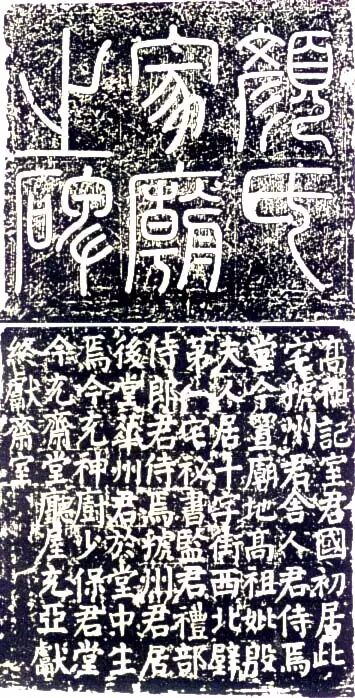 顏氏
家廟
之碑
高祖記室君國初居此
宅虢州君舍人君侍焉
堂今置廟地高祖妣殷
夫人居十字街西北壁
第一宅祕書監君禮部
侍郎君侍焉虢州君居
後堂華州君於堂中生
焉今充神廚少保君堂
今充齋堂廳屋充亞獻
終獻齋室